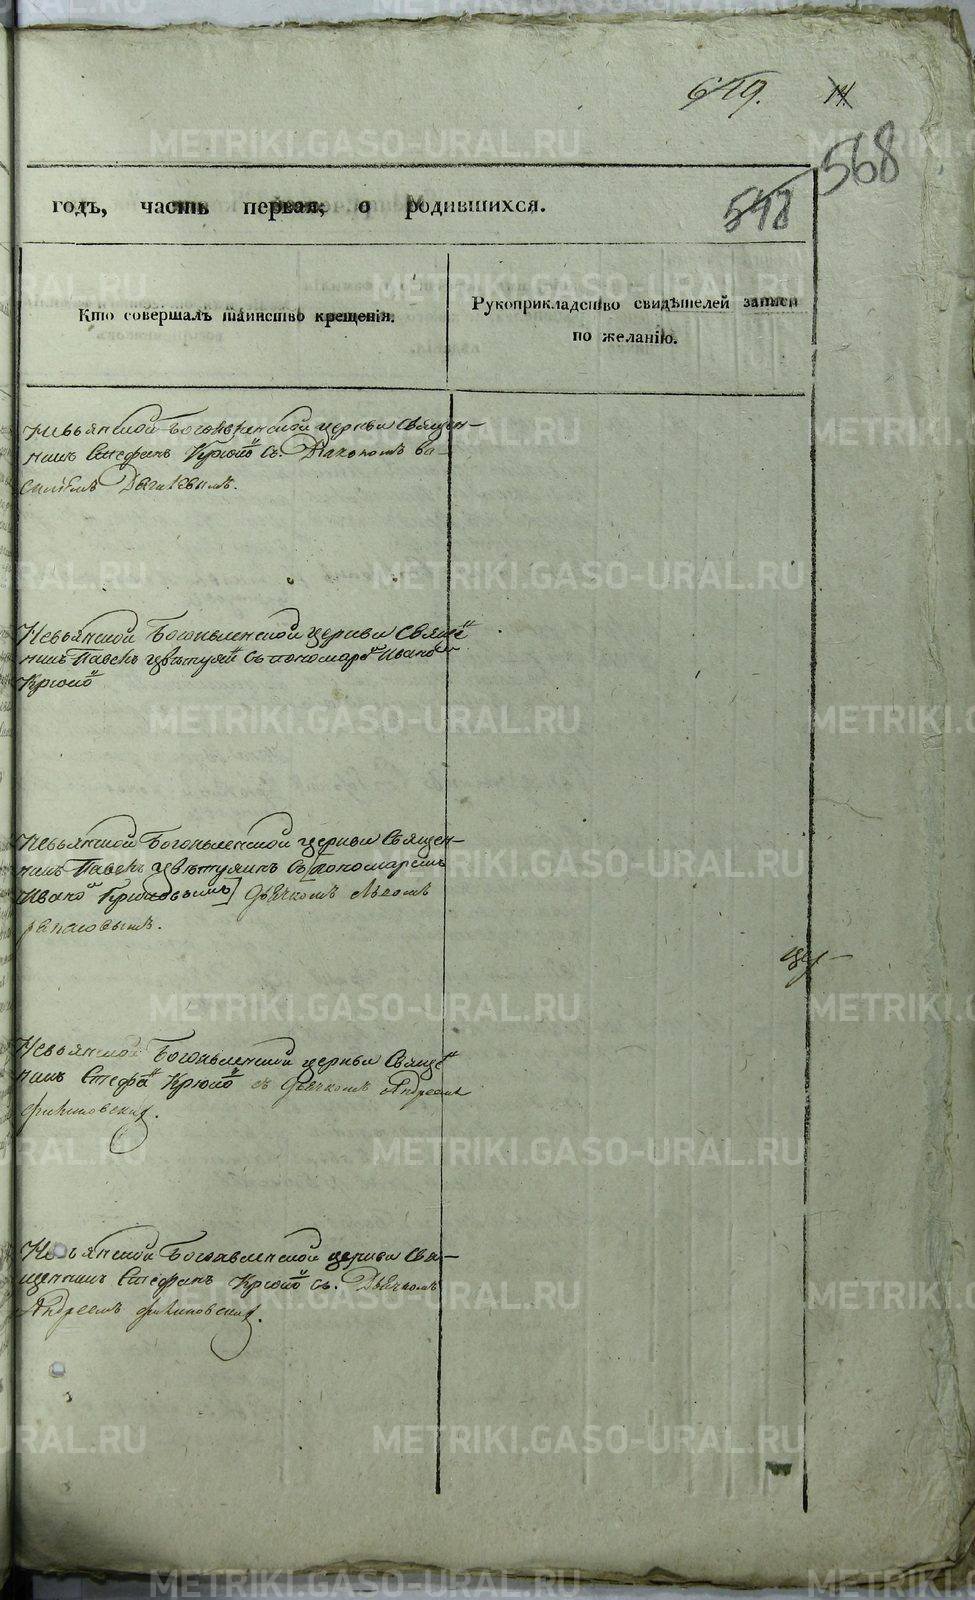 619. 14.
568
548
годъ, часть первая, о родившихся.
Кто совершалъ таинство крещенія.
Рукоприкладство свидѣтелей записи
по желанію.
Невьянской Богоявленской церкви Священ-
никъ Стефанъ Крюко съ Діакономъ Ва-
силіемъ
Невьянской Богоявленской церкви Свяще
никъ Павелъ съ пономаре Ивано
Крюко
Невьянской Богоявленской церкви Священ-
никъ Павелъ съ [пономаремъ
Ивано Крюковымъ] дьячкомъ
Невьянской Богоявленской церкви Свяще
никъ Стефа Крюко съ дьячкомъ Андреемъ
Невьянской Богоявленской церкви Свя-
щенникъ Стефанъ Крюко съ Дьячкомъ
Андреемъ
METRIKI.GASO-URAL.RU